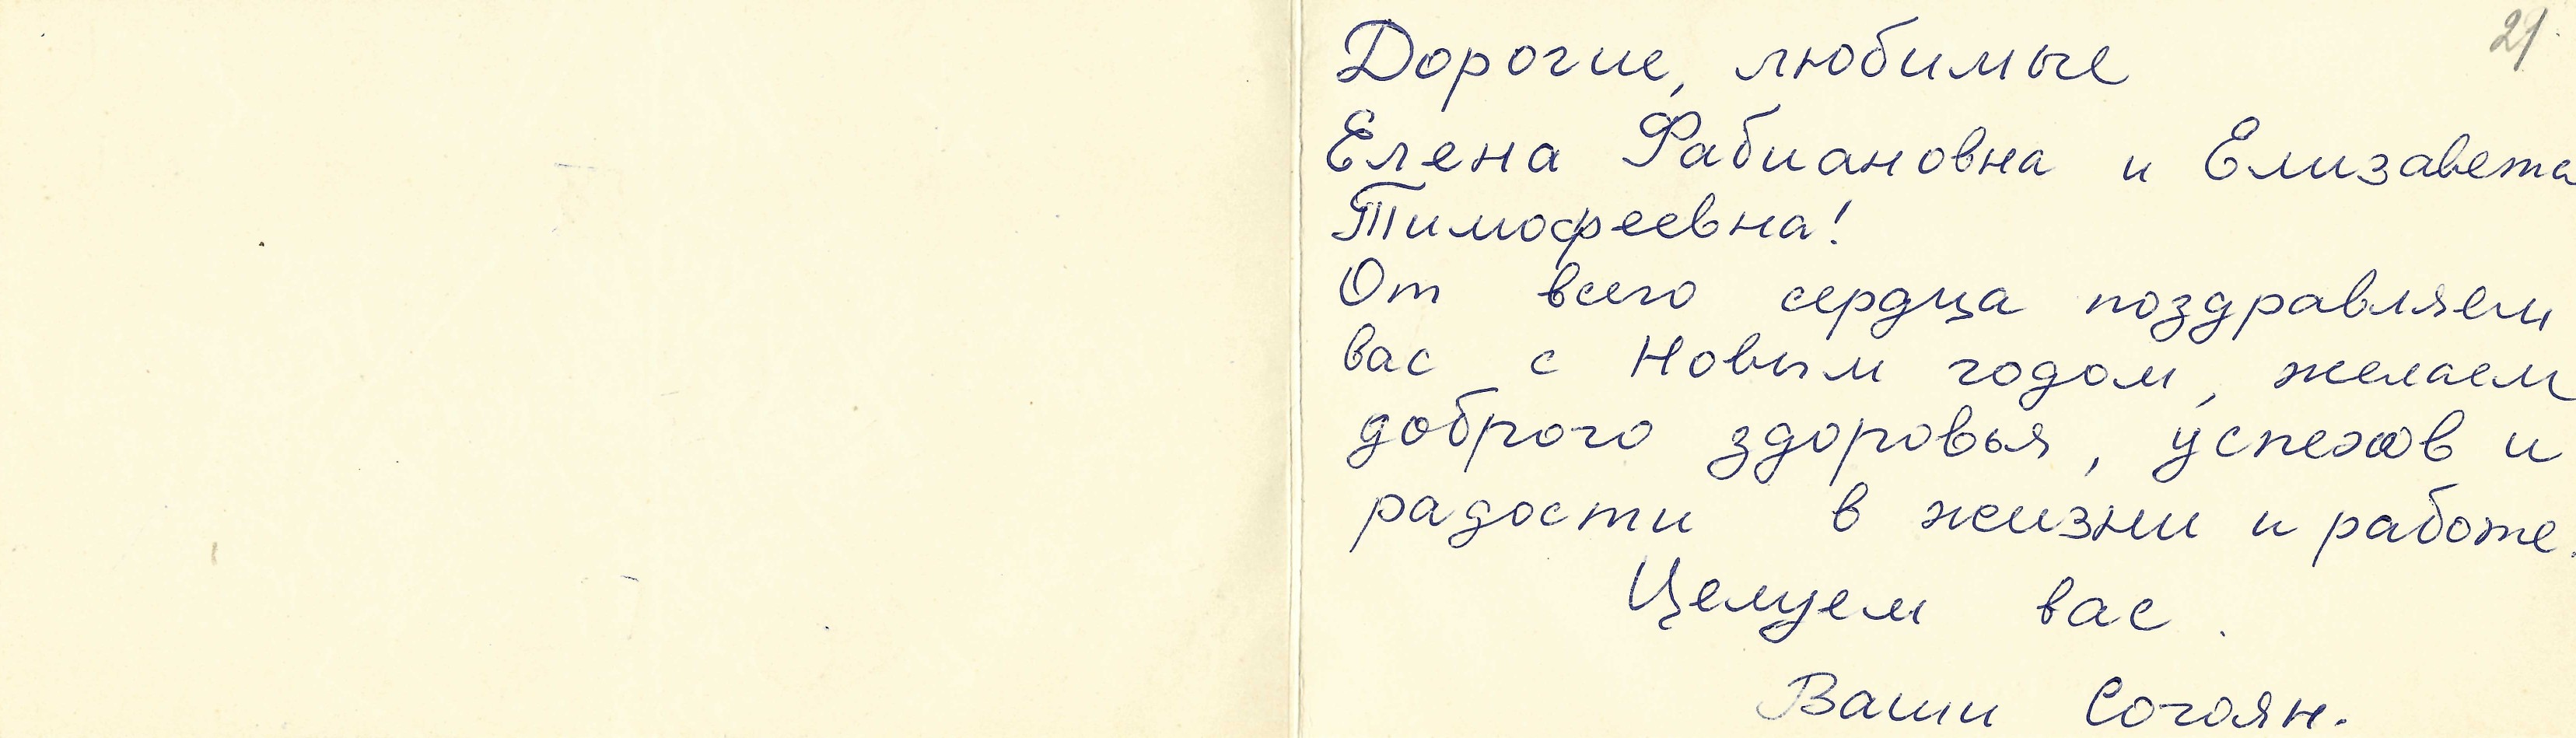 21
Дорогие, любимые
Елена Фабиановна и Елизавета
Тимофеевна!
От всего сердца поздравляем
вас с Новым годом, желаем
доброго здоровья, успехов и
радости в жизни и работе.
Целуем вас.
Ваши Согоян.